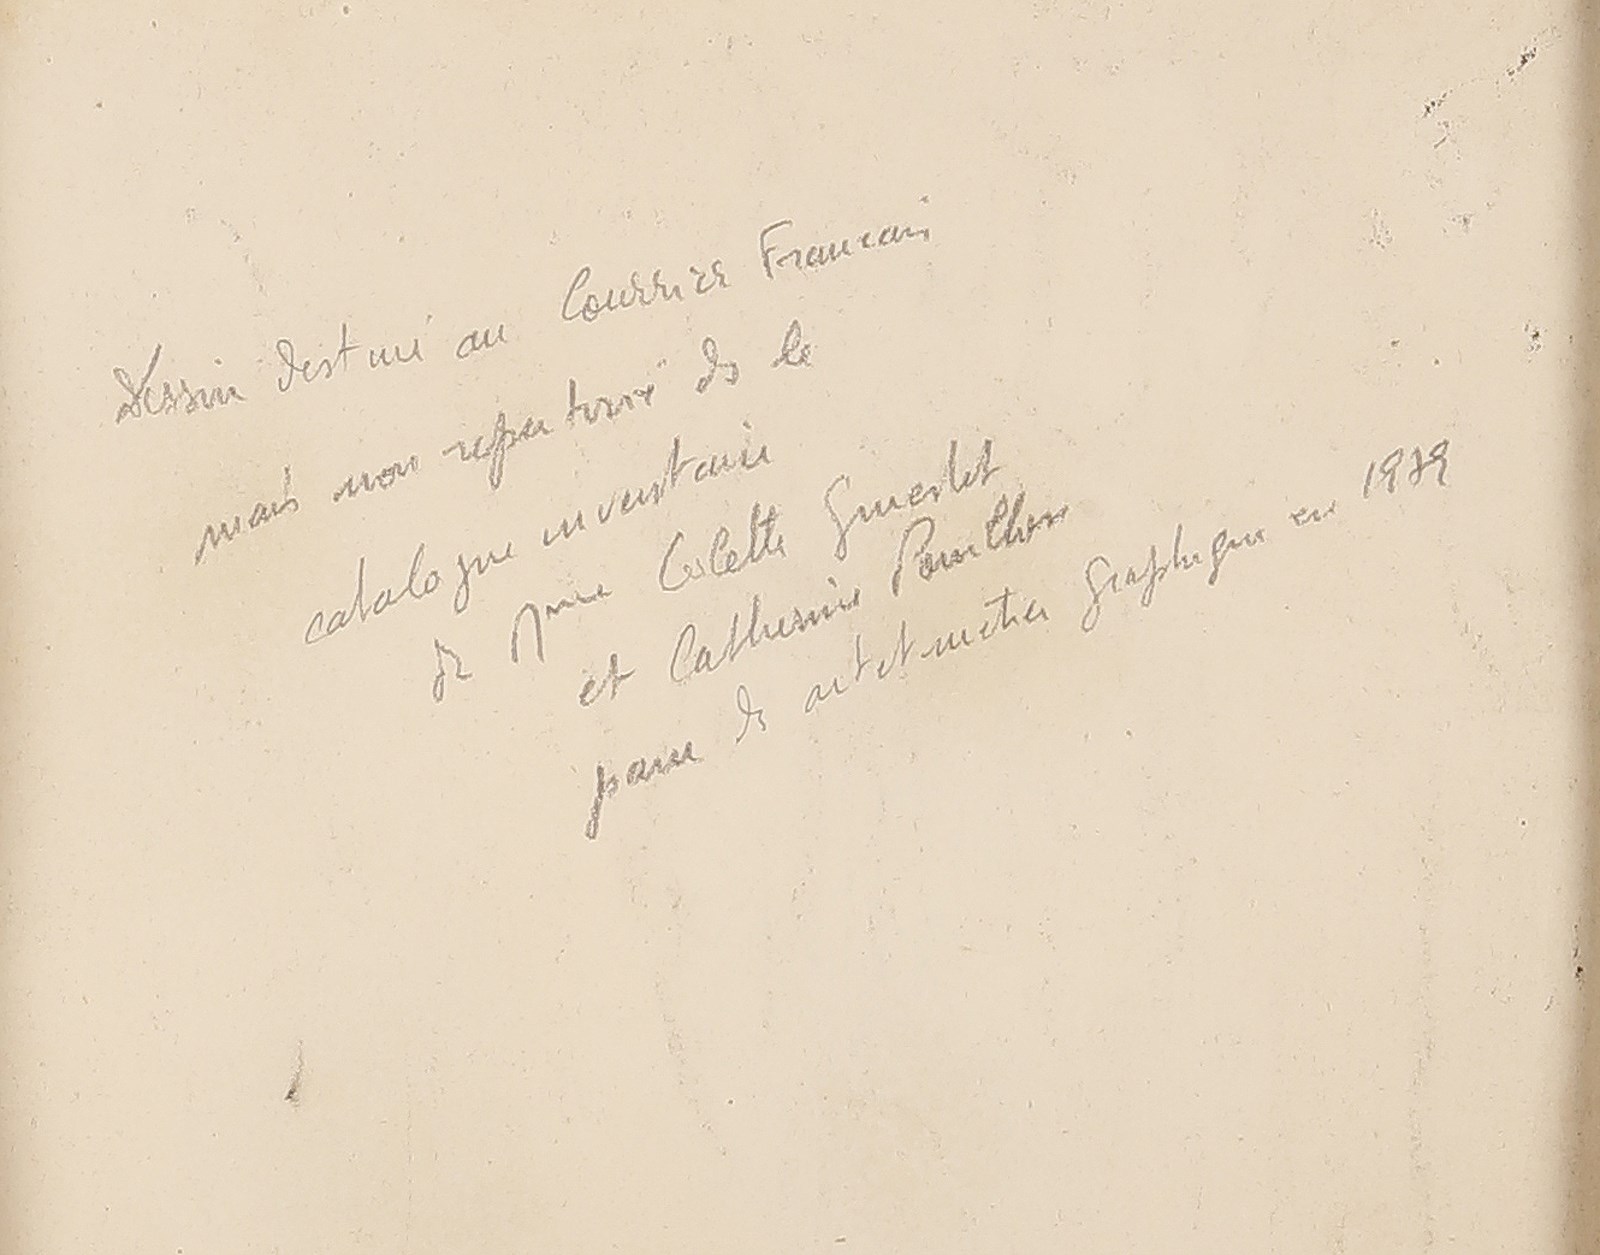 Dessin destiné au Courrier Francais
mais non repertorié ds le
catalogue inventaire
de Mme Colette
et Catherine
parue ds art et metier graphique en 1979